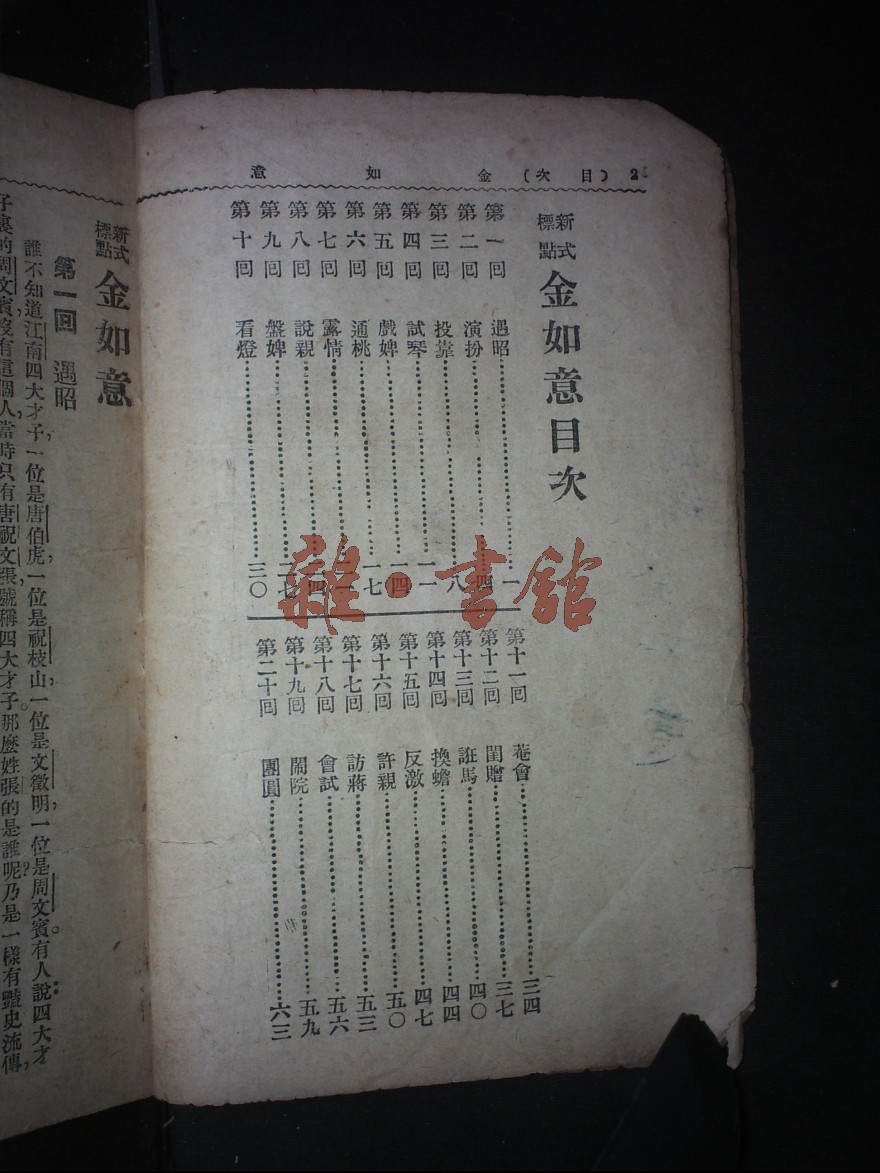 金如意 (目次) 2
新式標點 金如意目次
第一回 遇昭 一
第二回 演扮 四
第三回 投靠 八
第四回 試琴 一一
第五回 戲婢 一四
第六回 通桃 一七
第七回 露情
第八回 說親 二四
第九回 盤婢 二七
第十回 看燈 三〇
第十一回 菴會 三四
第十二回 閨贈 三七
第十三回 誑馬 四〇
第十四回 換蟾 四四
第十五回 反激 四七
第十六回 許親 五〇
第十七回 訪蔣 五三
第十八回 會試 五六
第十九回 鬧院 五九
第二十回 團圓 六三
新式標點 金如意
第一回 遇昭
誰不知道江南四大才子,一位是唐伯虎,一位是祝枝山,一位是文徵明,一位是周文賓。有人說四大才
子裏的周文賓,沒有這個人,當時只有唐祝文張,號稱四大才子。那麼姓張的是誰呢?乃是一樣有豔史流傳,
雜·書館